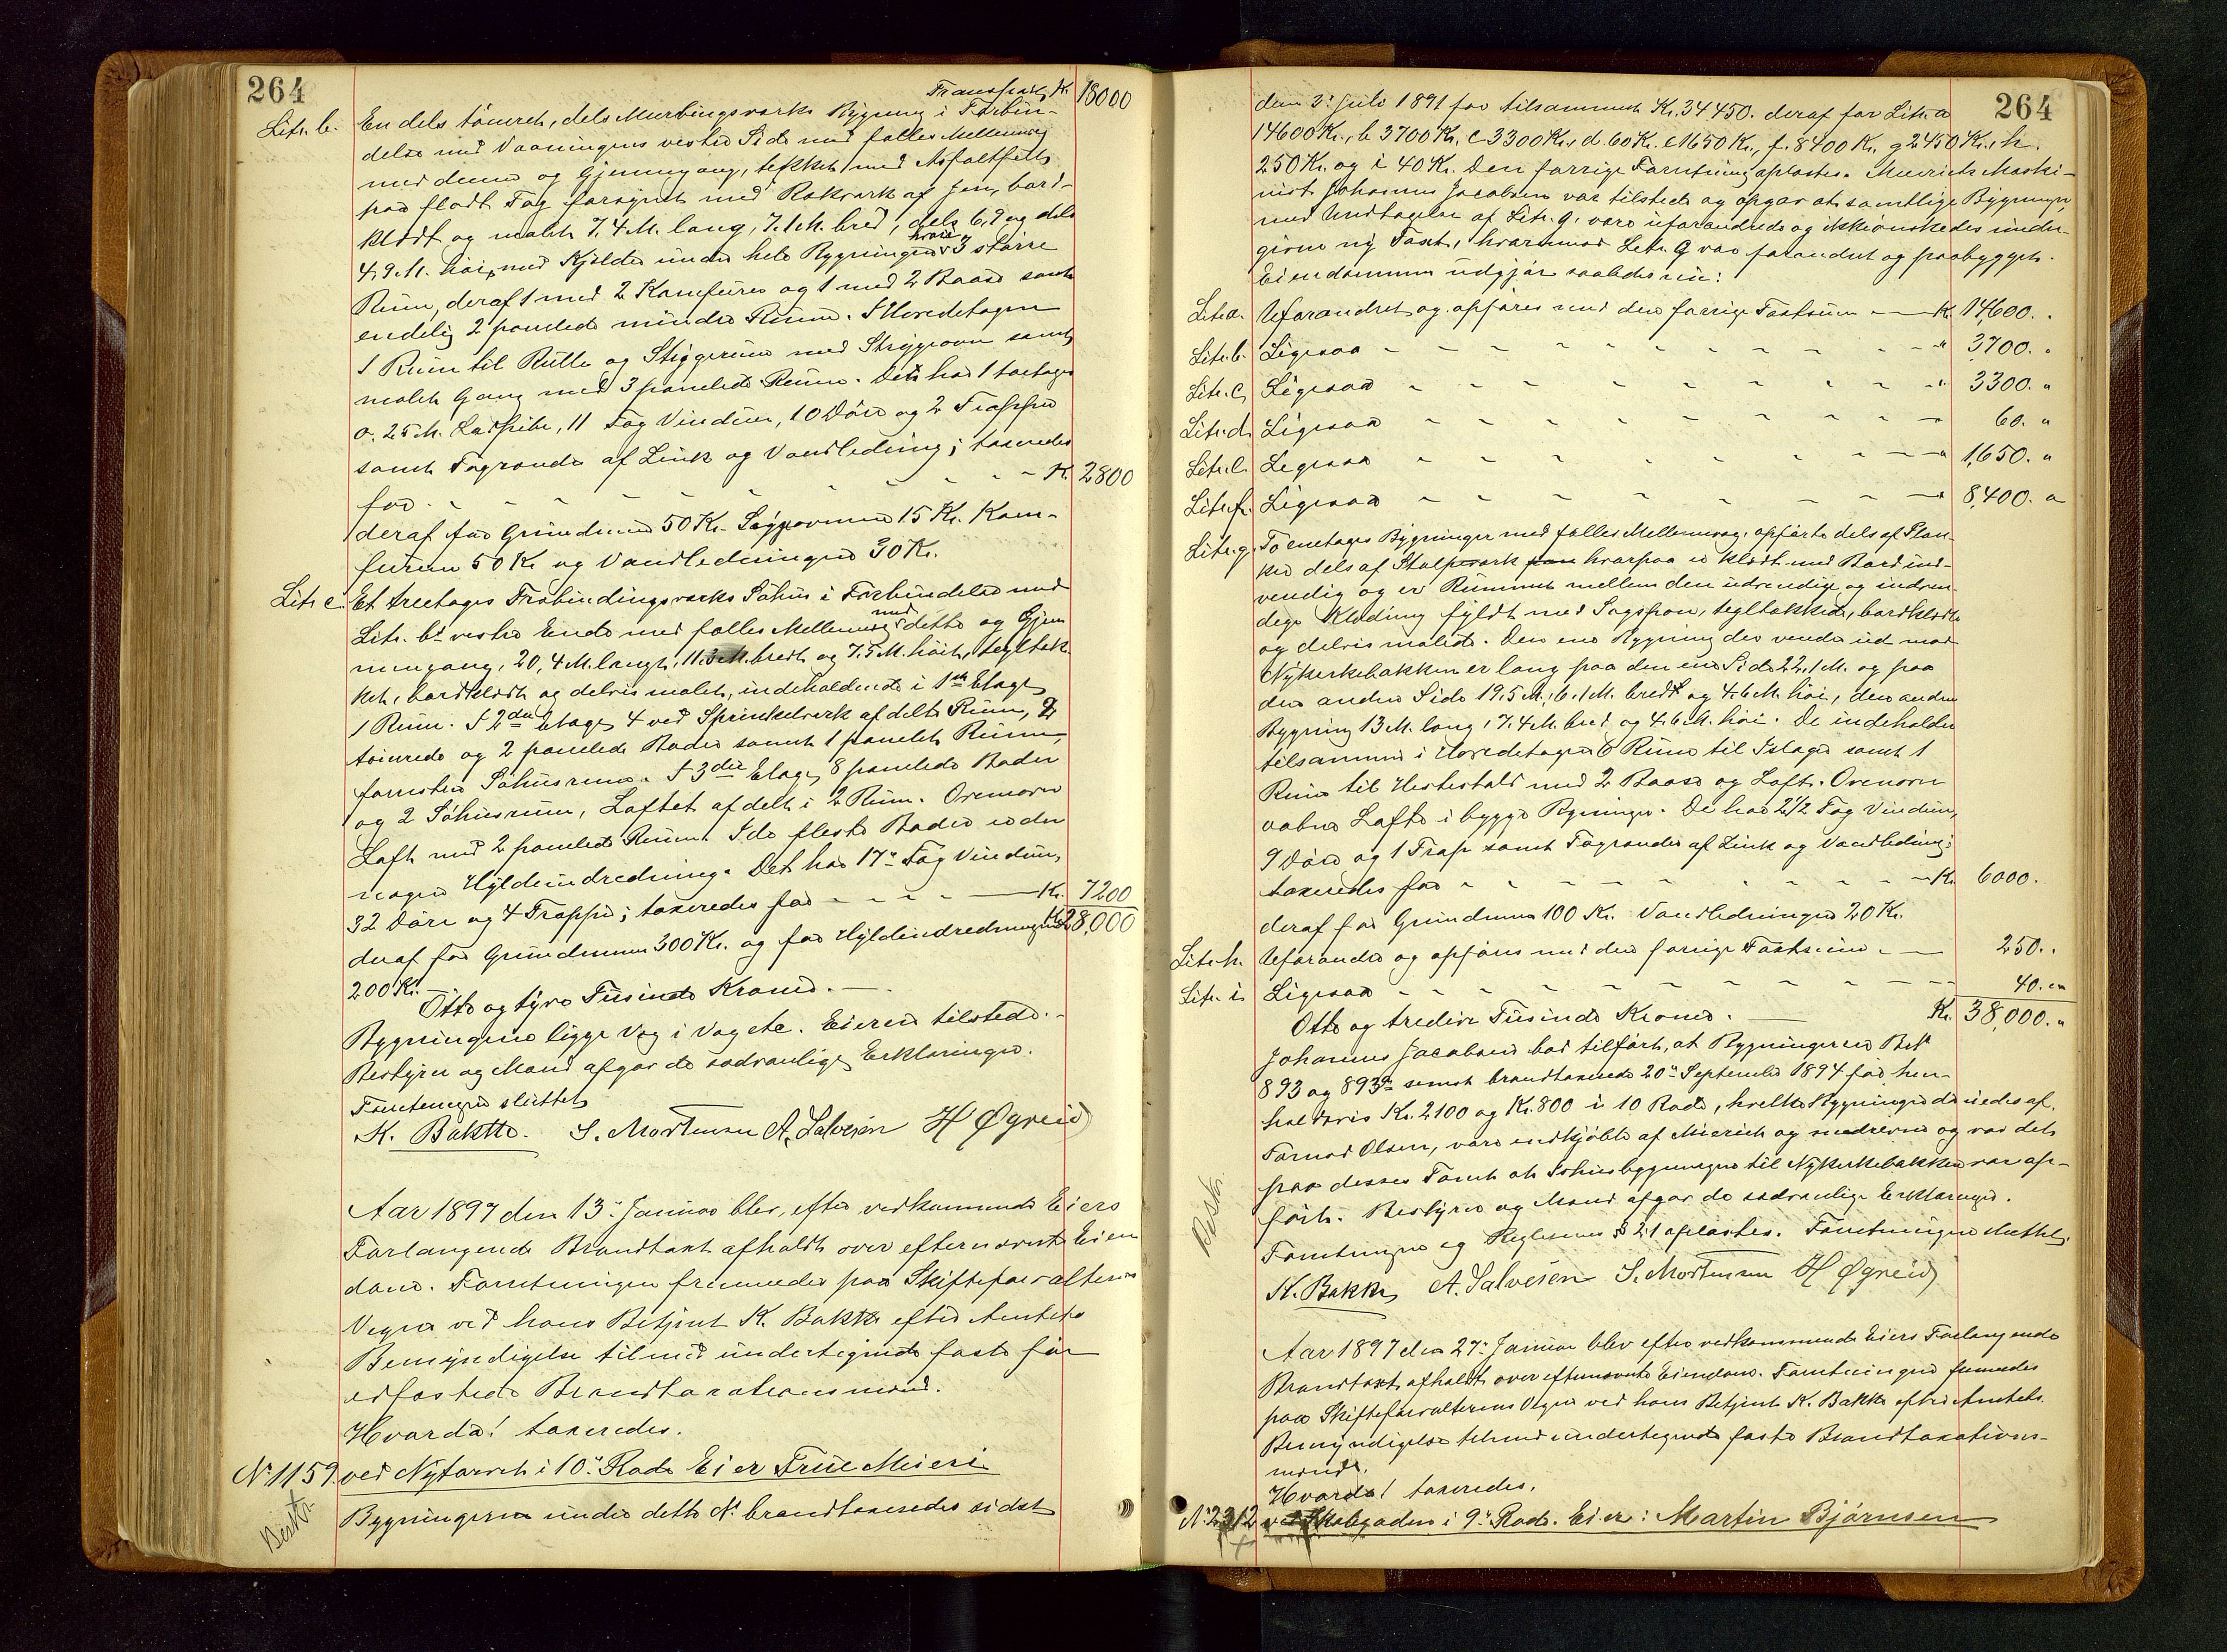 264
Transport, Kr. 18000
Litr. b. En dels tömret, dels Murbingsværks Bygning i Forbin-
delse med Vaaningens vestre Side med fælles Mellemvæg
med denne og Gjennemgang, tækket med Asfaltfilt
paa fladt Tag forsynet med Rækværk af Jern, bord-
klædt og malet 7,4 M. lang, 7.1 M. bred, dels 6,9 og dels
4,9 M. höi, med Kjelder under hele Bygningen hvori 3 större
Rum, deraf 1 med 2 Komfurer og 1 med 2 Baase samt
endelig 2 panelede mindre Rum. I Hovedetagen
1 Rum til Rulle og Strygerum med Strygeovn samt
malet Gang med 3 panelede Rum. Det har 1 toetages
0.25 M. Ludpibe, 11 Fag Vinduer, 10 Döre og 2 Trapper
samt Tagrende af Zink og Vandledning; taxeredes
for - - - - - - - - - Kr. 2800
deraf for Grundmuren 50 Kr. 15 Kr. Kom-
furen 50 Kr og Vandledningen 30 Kr.
Litr c. Et treetages Træbindingsværks Söhus i Forbindelse med
Litr. b's vestre Ende med fælles Mellemvæg med dette og Gjen-
nemgang, 20,4 M. langt, 11.3 M. bredt og 7.5 M. höit, tegltæk-
ket, bordklædt og delvis malet, indeholdende i 1ste Etage
1 Rum. I 2den Etage 4 ved Sprinkelværk afdelte Rum, 2
tömrede og 2 panelede Boder samt 1 panelet Rum,
forresten Söhusrum. I 3die Etage 8 panelede Boder
og 2 Söhusrum, Loftet afdelt i 2 Rum. Ovenover
Loft med 2 panelede Rum. I de fleste Boder er der
nogen Hyldeindredning. Det har 17" Fag Vinduer,
32 Döre og 4 Trapper; taxeredes for - - - - Kr. 7200
deraf for Grundmuren 300 Kr. og for Hyldeindredningen Kr. 28,000
200 Kr. -
Otte og tyve Tusinde Kroner. -
Bygningerne ligge Væg i Væg etc. Eieren tilstede. -
Bestyrer og Mænd afgav de sædvanlige Erklæringer.
Forretningen sluttet
K. Bakke. S. Mortensen A. Salvesen H Øgreid
Aar 1897 den 13" Januar blev, efter vedkommende Eiers
Forlangende Brandtaxt afholdt over efternævnte Eien-
dom. Forretningen fremmedes paa Skifteforvalterens
Vegne ved hans Betjent K. Bakke efter Amtets
Bemyndigelse tilmed undertegnede faste för
edfæstede Brandtaxationsmænd.
Hvorda! taxeredes.
No 1159. ved Nytorvet i 10" Rode Eier Frue Meier
Bestr.
Bygningerne under dette No brandtaxeredes sidst
264
den 3' Juli 1891 for tilsammen Kr. 34450. deraf for Litr. a
14600 Kr., b 3700 Kr. c 3300 Kr., d. 60 Kr. e 1650 Kr., f. 8400 Kr. g 2450 Kr., h.
250 Kr. og i 40 Kr. Den forrige Forretning oplæstes. Maski-
nist Johannes Jacobsen var tilstede og opgav at samtlige Bygninger,
med Undtagelse af Litr. g. vare uforandrede og ikke önskedes under-
given ny Taxt, hvorimod Litr. g var forandret og paabygget.
Eiendommen udgjör saaledes nu:
Litr. a. Uforandret og opföres med den forrige Taxtsum - - Kr. 14,600. "
Litr. b. Ligesaa - - - - - - - - - - " 3700. "
Litr. c. Ligesaa - - - - - - - - - " 3300. "
Litr. d. Ligesaa - - - - - - - - - 60. "
Litr. e. Ligesaa - - - - - - - - - " 1,650. "
Litr. f. Ligesaa - - - - - - - - - " 8,400. "
Litr. g. To enetages Bygninger med fælles Mellemvæg. opförte dels af Plan-
ker dels af Stolpeværk hvorpaa er klædt med Bord ind-
vendig og er Rummet mellem den udvendige og indven-
dige Klædning fyldt med Sagspon, tegltækkede, bordklædte
og delvis malede. Den ene Bygning der vender ud mod
Nykirkebakken er lang paa den ene Side 22.1 M. og paa
den anden Side 19.5 M., 6.1 M. bredt og 4.6 M. höi, den anden
Bygning 13 M. lang, 7.4 M. bred og 4.6 M. höi. De indeholder
tilsammen i Hovedetagen 6 Rum til Islager samt 1
Rum til Hestestald med 2 Baase og Loft. Ovenover
aabne Lofte i begge Bygninger. De har 2 1/2 Fag Vinduer,
9 Döre og 1 Trap samt Tagrender af Zink og Vandledning;
taxeredes for - - - - - - - - - Kr. 6000.
deraf for Grundmuren 100 Kr. Vandledningen 20 Kr.
Litr. h. Uforandret og opföres med den forrige Taxtsum. - 250. "
Litr. i. Ligesaa - - - - - - - - - - 40. "
Otte og tredive Tusinde Kroner. - Kr. 38,000. "
Johannes Jacobsen bad tilfört, at Bygningerne Bet
893 og 893a senest brandtaxerede 20" September 1894 for hen-
holdsvis Kr. 2100 og Kr. 800 i 10 Rode, hvilke Bygninger da eiedes af
Olsen, vare indkjöbte af og nedrevne og var det
paa dennes Tomt at Söhusbygningen til Nykirkebakken var op-
fört. Bestyrer og Mænd afgav de sædvanlige Erklæringer.
Bestr.
Forretningen og Reglernes § 21 oplæstes. Forretningen sluttet.
K. Bakke A. Salvesen S. Mortensen H Øgreid
Aar 1897 den 27" Januar blev efter vedkommende Eiers Forlangende
Brandtaxt afholdt over efternævnte Eiendom. Forretningen fremmedes
paa Skifteforvalterens Vegne ved hans Betjent K. Bakke efter Amtets
Bemyndigelse tilmed undertegnede faste Brandtaxations-
mænd.
Hvorda! taxeredes.
No 2312 ved Skolegaden i 9" Rode. Eier: Martin Bjørnsen